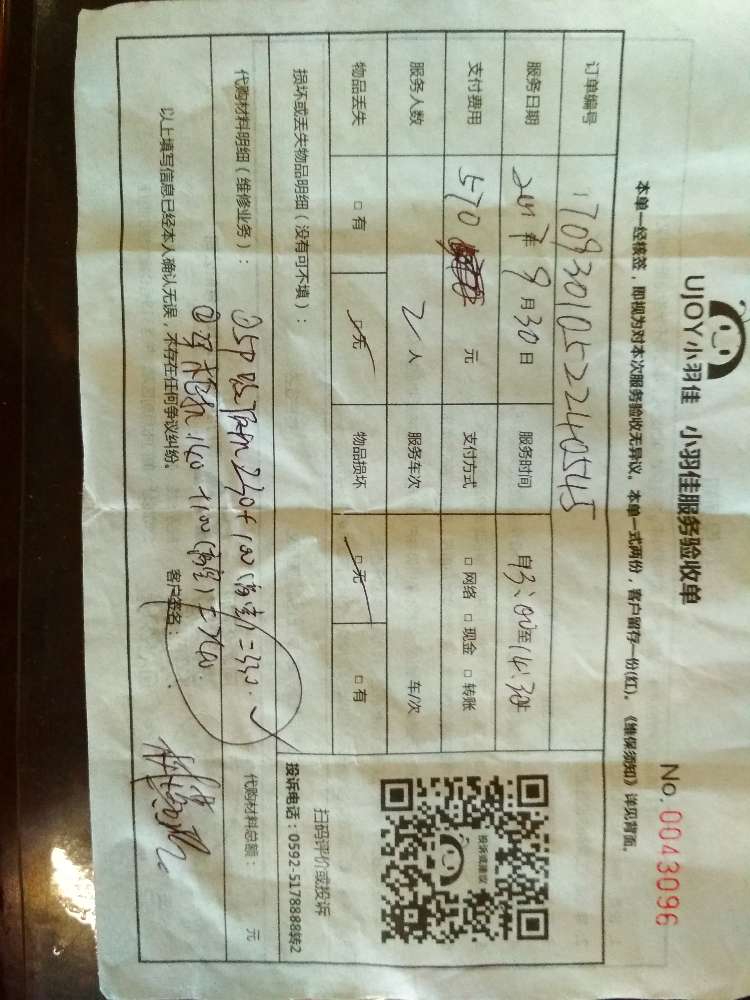 UJOY小羽佳 小羽佳服务验收单
No. 0043096
本单一经核签，即视为对本次服务验收无异议。本单一式两份，客户留存一份(红)。《维保须知》详见背面。
订单编号 1709301052240545
服务日期 2017年9月30日 服务时间 自13:00至14:30
支付费用 570 元 支付方式 □网络 □现金 □转账
服务人数 2人 服务车次 车/次
物品丢失 □有 □无 物品损坏 □无 □有
损坏或丢失物品明细（没有可不填）：
代购材料明细（维修业务）： 代购材料总额： 元
230+100(高空)=330
以上填写信息已经本人确认无误，不存在任何争议纠纷。 客户签名：
投诉或建议
扫码评价或投诉
投诉电话：0592-5178888转2